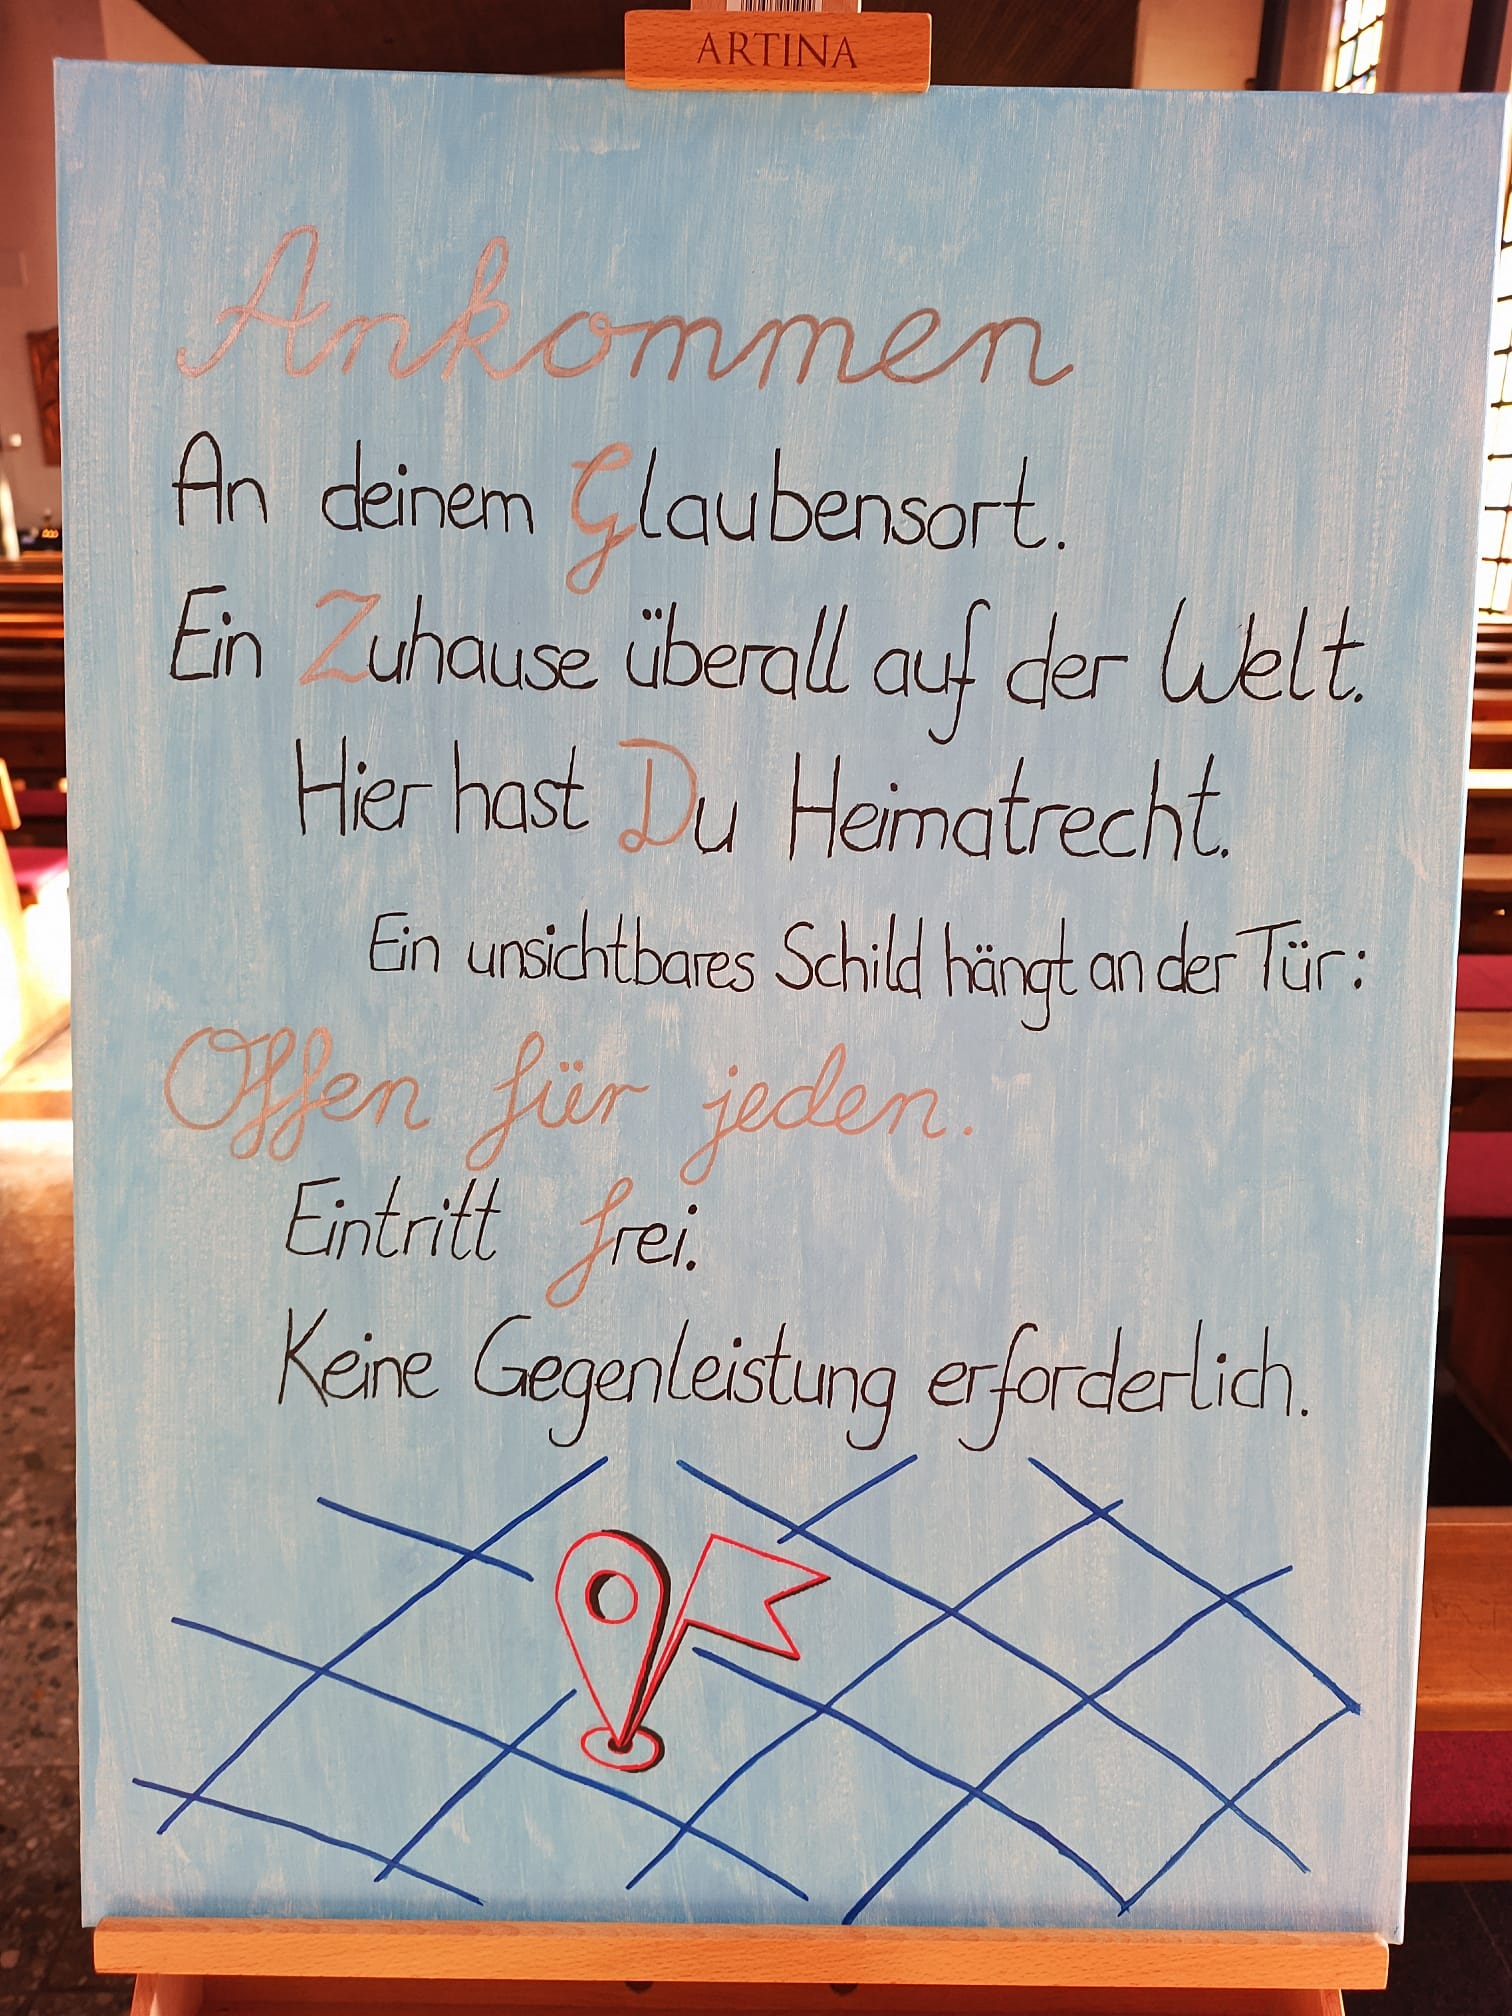 ARTINA
Ankommen
An deinem Glaubensort.
Ein Zuhause überall auf der Welt.
Hier hast Du Heimatrecht.
Ein unsichtbares Schild hängt an der Tür:
Offen für jeden.
Eintritt frei.
Keine Gegenleistung erforderlich.